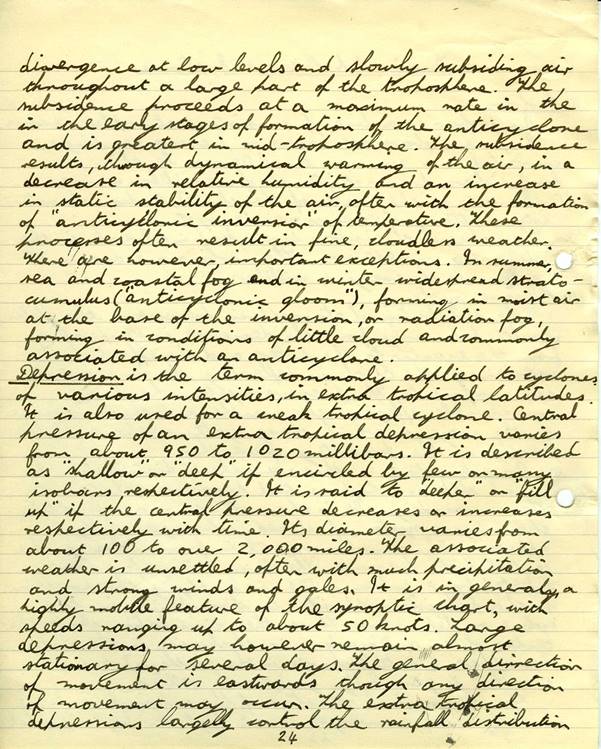 divergence at low levels and slowly subsiding air
throughout a large part of the troposphere. The
subsidence proceeds at a maximum rate in the
in the eary stages of formation of the anticyclone
and is greatent in mid-troposphere. The subsidence
results, through dynamical warming of the air, in a
decrease in relative humidity and an increase
in static stability of the air, often with the formation
of "anticyclonic inversion" of temperature. These
processes often result in fine, cloudless weather.
There are however, important exceptions. In summer,
sea and coastal fog and in winter widespread strato-
cumulus ("anticyclonic gloom"), forming in moist air
at the base of the inversion, or radiation fog,
forming in conditions of little cloud and commonly
associated with an anticyclone.
Depression is the term commonly applied to cyclones
of various intensities, in extra tropical latitudes.
It is also used for a weak tropical cyclone. Central
pressure of an extra tropical depression varies
from about 950 to 1020 millibars. It is described
as "shallow" or "deep" if encircled by few or many
isobars respectively. It is said to "deepen" or "fill
up" if the central pressure decreases or increases
respectively with time. Its diameter varies from
about 100 to over 2,000 miles. The associated
weather is unsettled, often with much precipitation
and strong winds and gales. It is in general, a
highly mobile feature of the synoptic chart, with
speeds ranging up to about 50 knots. Large
depressions, may however remain almost
stationary for several days. The general dirrection
of movement is eastwards though any direction
of movement may occur. The extra tropical
depressions largely control the rainfall distribution
24